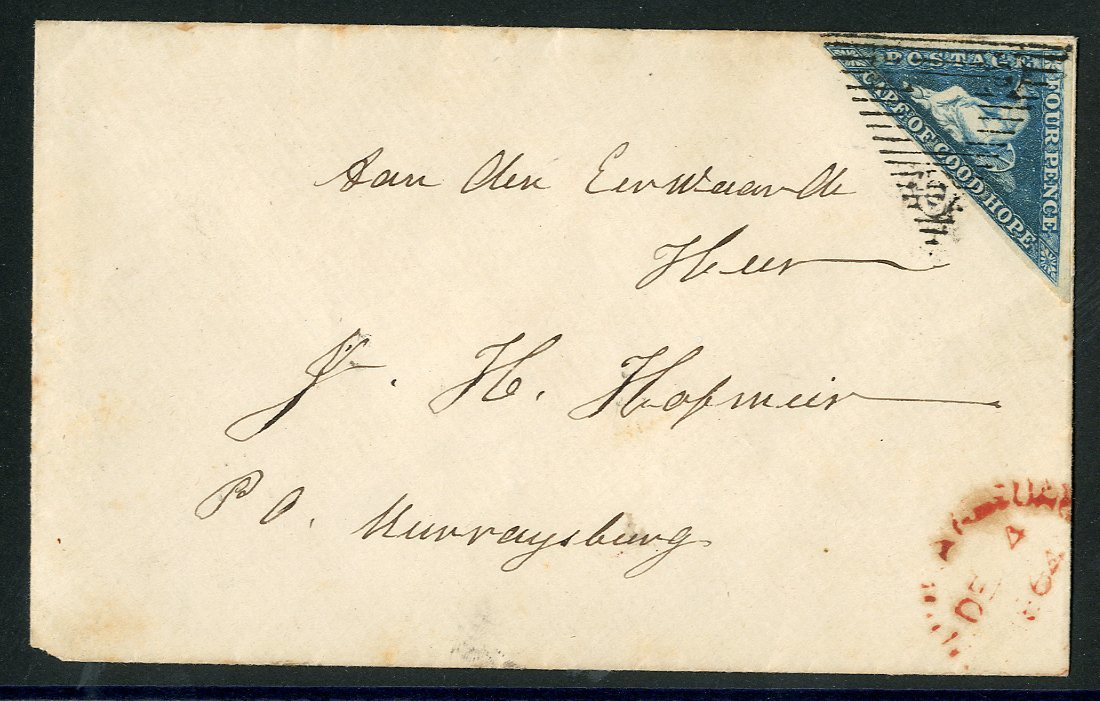 POSTAGE
FOUR PENCE
CAPE OF GOOD HOPE
Aan den Eerwaarde
Heer
J. H. Hofmeir
P O. Murraysburg
DE 4
64